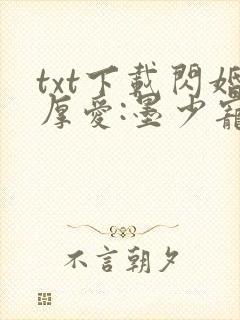 txt下載閃婚
厚愛:墨少寵
不言朝夕